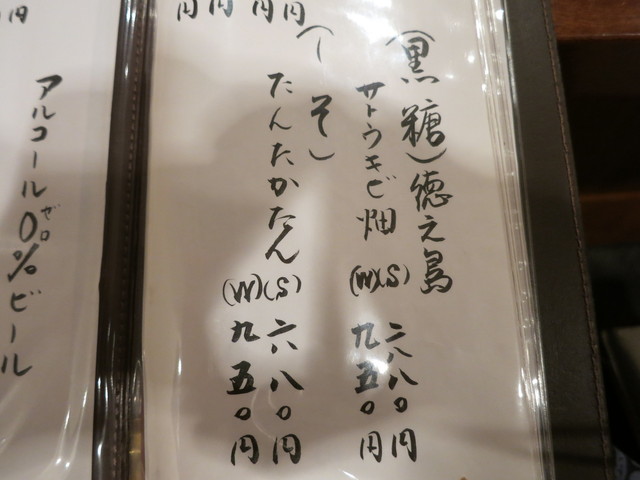 円
円
円
円
(黒糖)徳之島
サトウキビ畑
(S)六八〇円
(W)九五〇円
(しそ)
たんたかたん
(S)六八〇円
(W)九五〇円
アルコール0%ビール
ゼロ
円